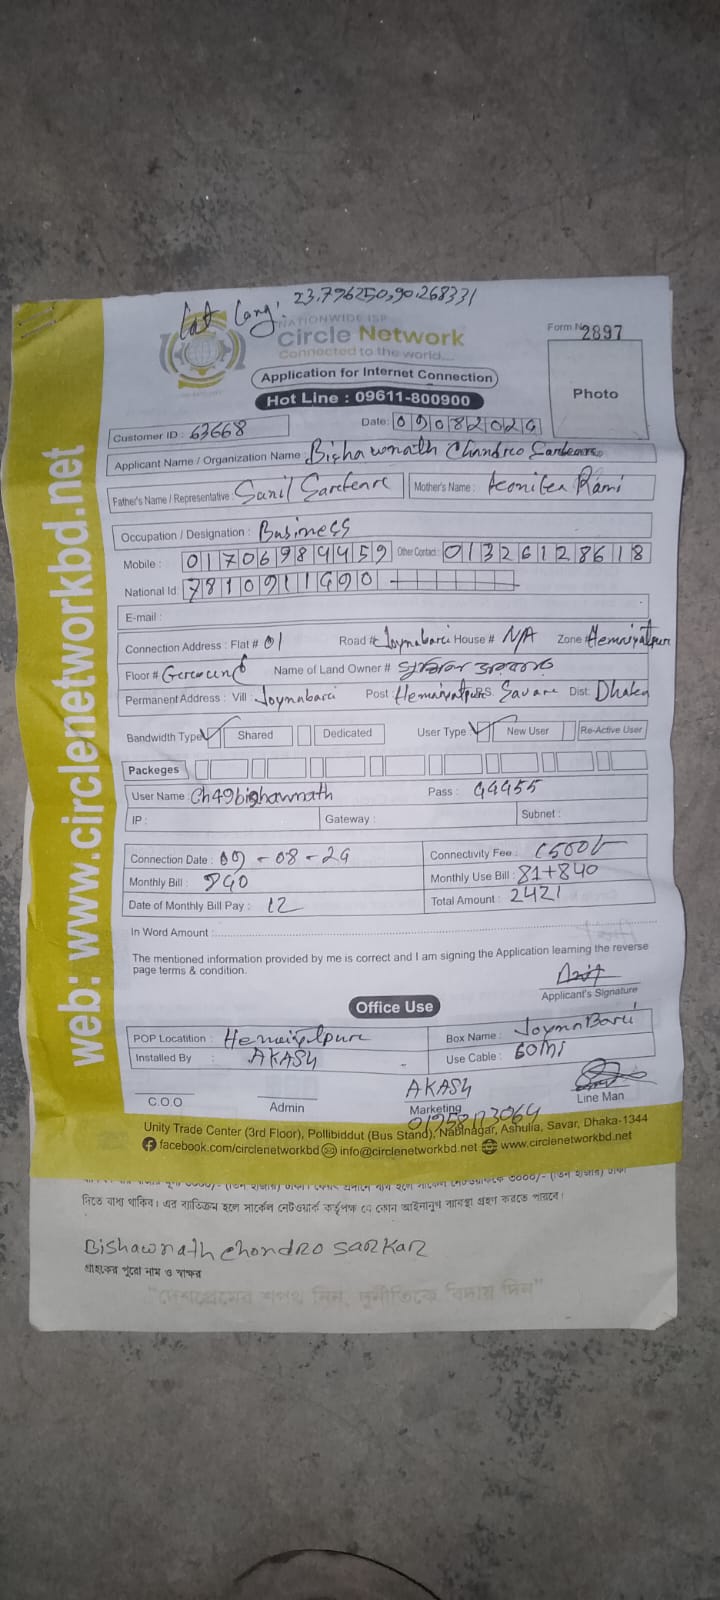 Lat Lang: 23.796250,90.268331
NATIONWIDE ISP
Circle Network
Connected to the world....
Form No 2897
Application for Internet Connection
Hot Line : 09611-800900
Photo
Customer ID : 63668
Date: 09082024
Applicant Name / Organization Name : Bishawnath Chandro
Father's Name / Representative : Sunil
Mother's Name :
Occupation / Designation : Business
Mobile : 01706984459 Other Contact : 01326128618
National Id: 7810911490
E-mail :
Connection Address : Flat # 01 Road # Joynabari House # N/A Zone Hemaiyatpur
Floor # Name of Land Owner #
Permanent Address : Vill Joynabari Post Hemaiyatpur P.S. Savar Dist: Dhaka
Bandwidth Type Shared Dedicated User Type New User Re-Active User
Packeges
User Name : Ch49bishawnath Pass : 44455
IP : Gateway : Subnet :
Connection Date : 09-08-24 Connectivity Fee : 1500/-
Monthly Bill : 840 Monthly Use Bill : 81+840
Date of Monthly Bill Pay : 12 Total Amount : 2421
In Word Amount :
The mentioned information provided by me is correct and I am signing the Application learning the reverse
page terms & condition.
Applicant's Signature
Office Use
POP Locatition : Hemaiyatpur Box Name : JoynaBari
Installed By : AKASH Use Cable : 60Mi
AKASH
C.O.O Admin Marketing Line Man
Unity Trade Center (3rd Floor), Pollibiddut (Bus Stand), Nabinagar, Ashulia, Savar, Dhaka-1344
facebook.com/circlenetworkbd info@circlenetworkbd.net www.circlenetworkbd.net
web: www.circlenetworkbd.net
দিতে বাধ্য থাকিব। এর ব্যতিক্রম হলে সার্কেল নেটওয়ার্ক কর্তৃপক্ষ যে কোন আইনানুগ ব্যবস্থা গ্রহণ করতে পারবে।
Bishawnath chondro sarkar
গ্রাহকের পুরো নাম ও স্বাক্ষর
"দেশপ্রেমের শপথ নিন, দুর্নীতিকে বিদায় দিন"